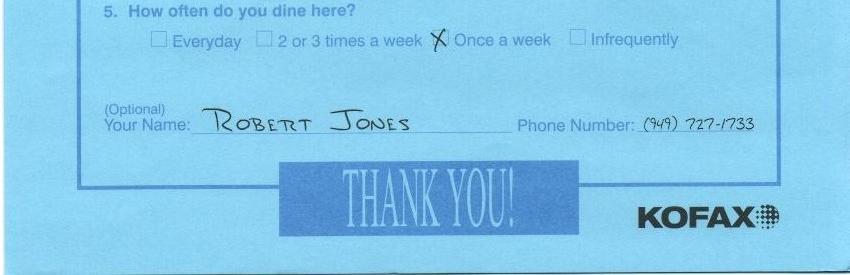 5. How often do you dine here?
Everyday 2 or 3 times a week X Once a week Infrequently
(Optional)
Your Name: ROBERT JONES Phone Number: (949) 727-1733
THANK YOU!
KOFAX